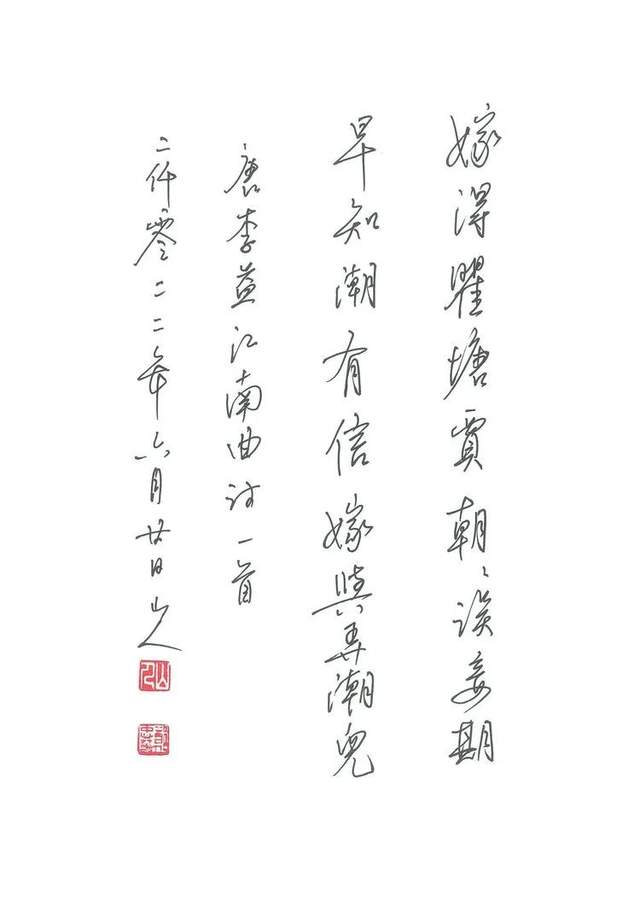 嫁得瞿塘賈朝〻誤妾期
早知潮有信嫁與弄潮兒
唐李益江南曲詩一首
二仟零二二年六月廿日山人
山人